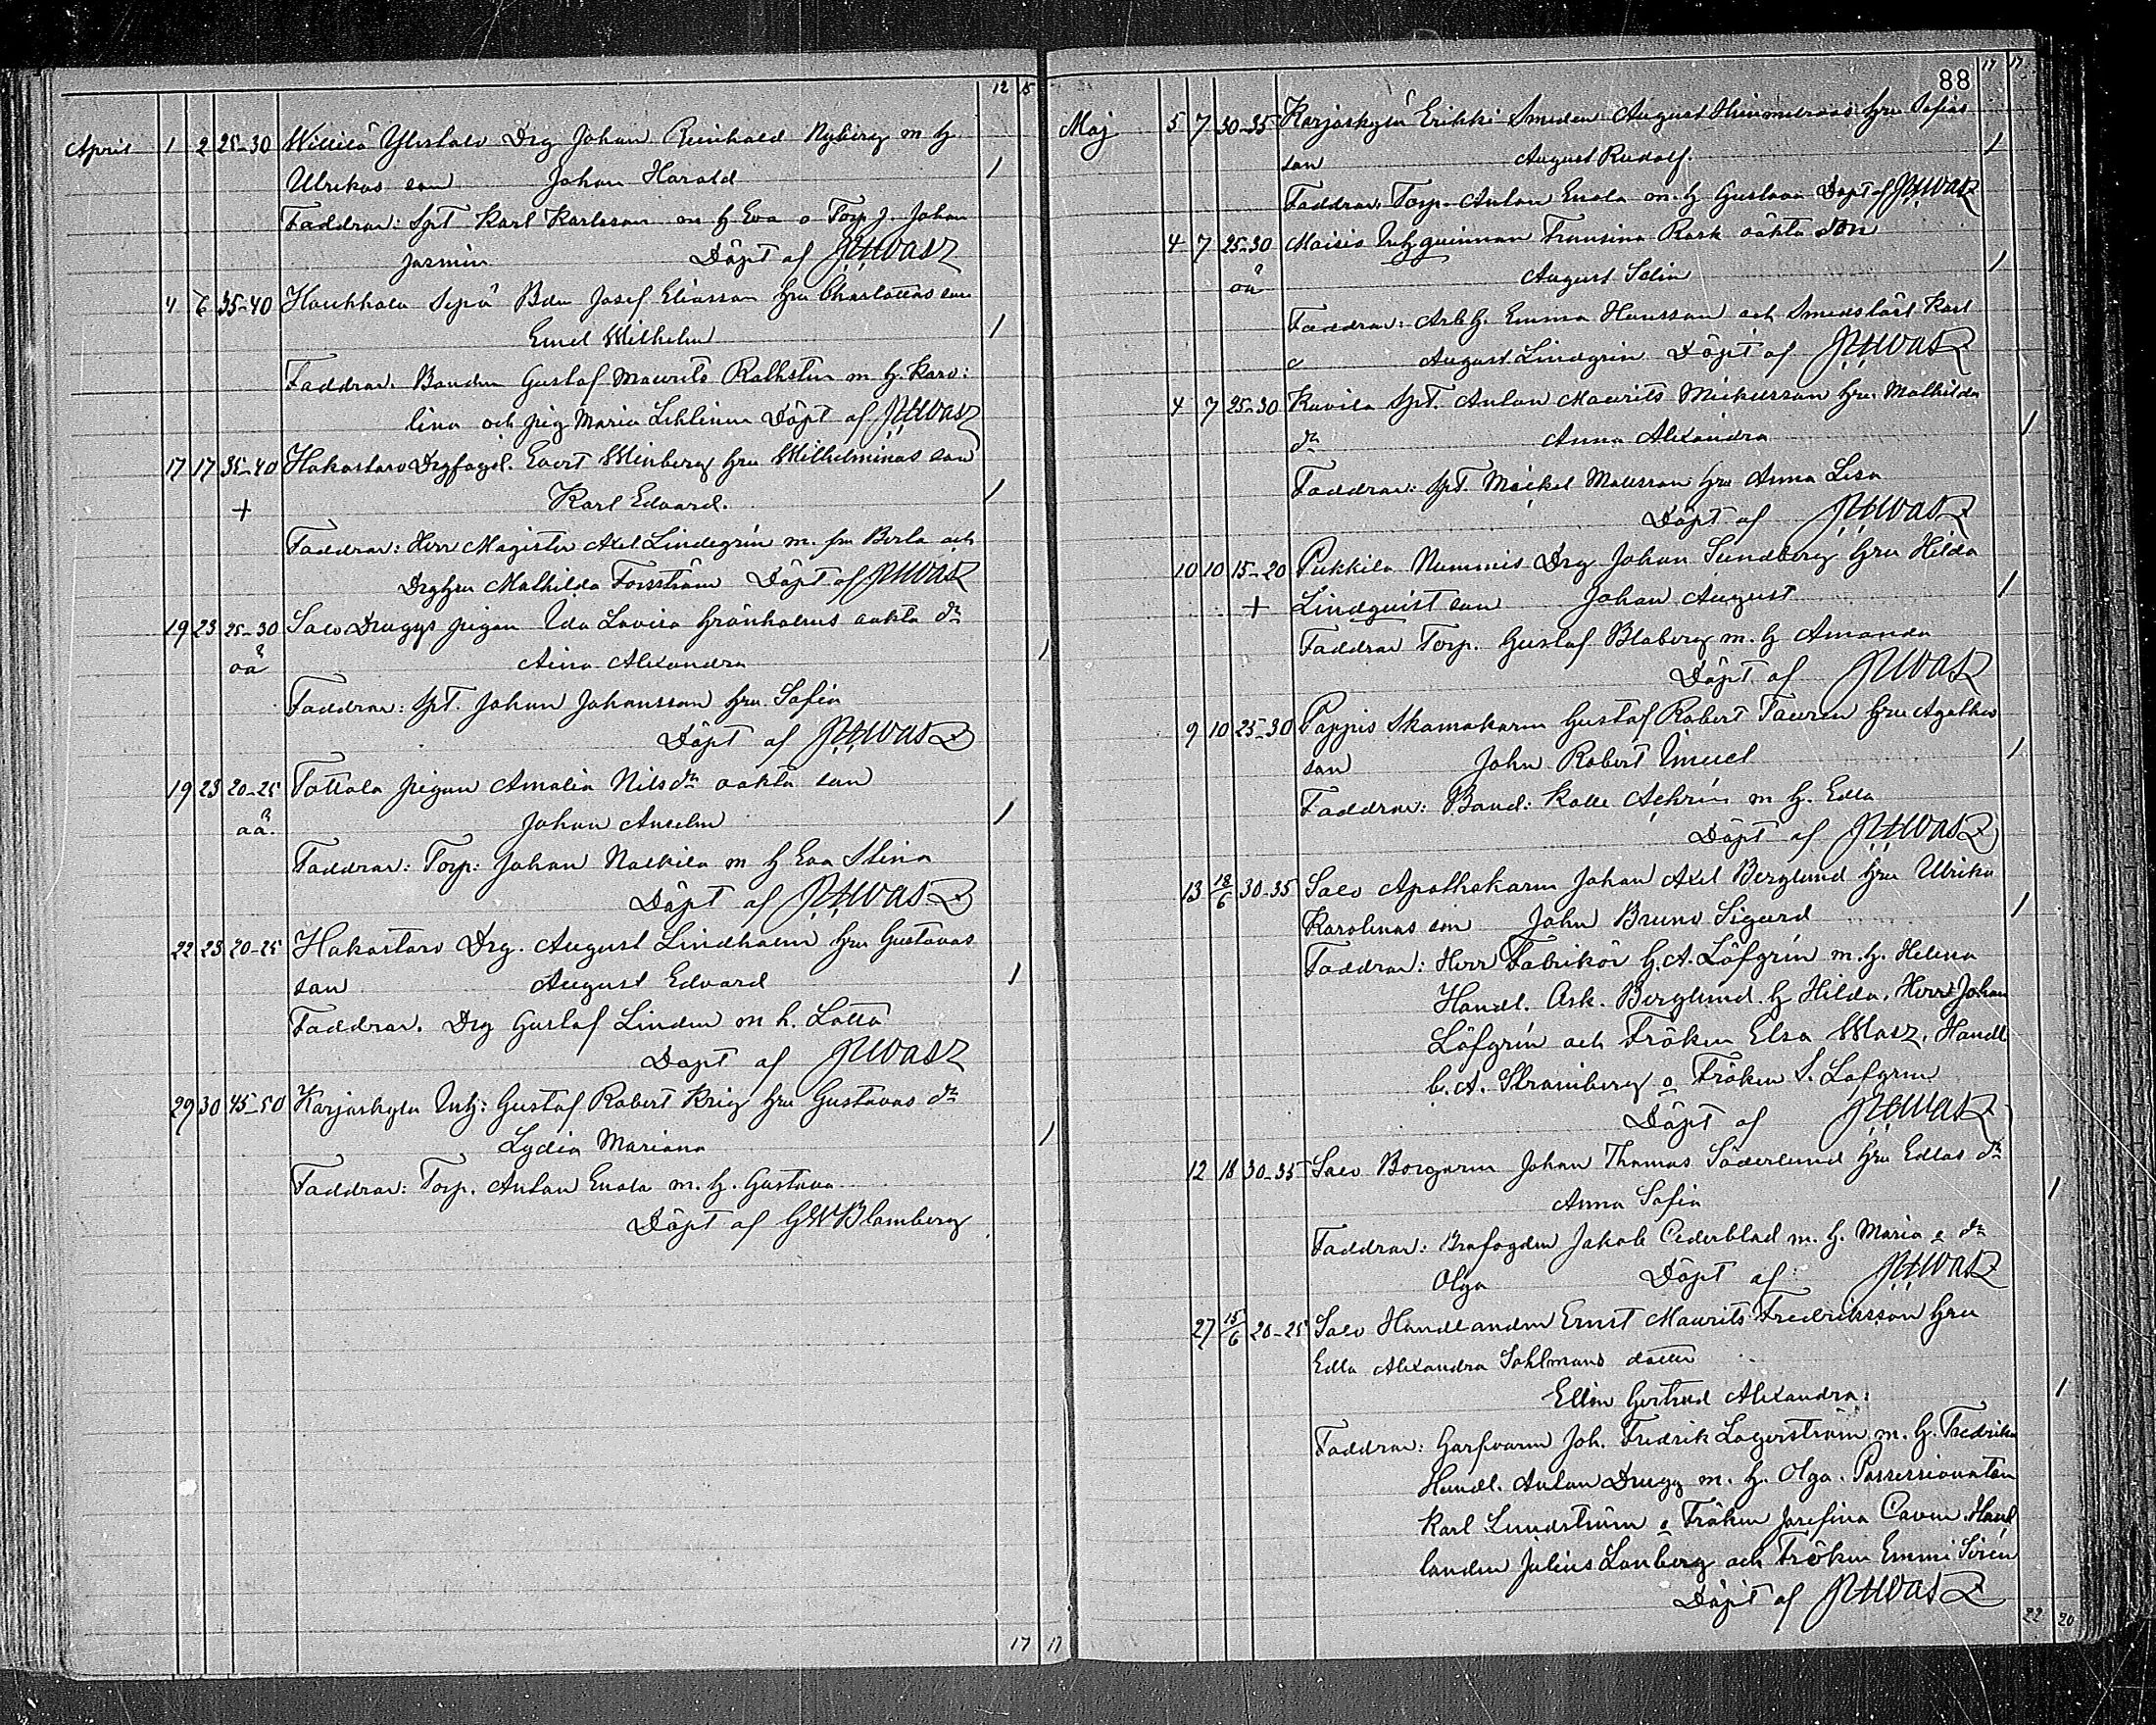 12 15
April 1 2 25-30 Willilä Ylistalo Drg Johan Reinhold Nyberg m h
Ulrikas son Johan Harald 1
Faddrar: Spt Karl Karlsson m h Eva o Torp J. Johan
Jasmin Döpt af
4 6 35-40 Haukkala Sepä Bdn Josef Eliasson hru Charlottas son
Emil Wilhelm 1
Faddrar. Bonden Gustaf Maurits Rathstén m h. Karo:
lina och pig Maria Lehtinen Döpt af
17 17 35-40 Hakastaro Drgfogd. Evert Winberg hru Wilhelminas son
+ Karl Edvard. 1
Faddrar: Herr Magister Axel Lindegrén m. fru Berta och
Drghru Mathilda Forsström Döpt af
19 23 25-30 Salo Dragys pigan Ida Lovisa Grönholms oakta dr
oä Aina Alexandra 1
Faddrar: Spt. Johan Johansson hru Sofia
Döpt af
19 23 20-25 Tottola pigan Amalia Nilsdr oakta son
oä. Johan Anselm 1
Faddrar: Torp: Johan Nalkila m h Eva Stina
Döpt af
22 23 20-25 Hakastaro Drg. August Lindholm hru Gustavas
son August Edvard 1
Faddrar. Drg Gustaf Linden m h. Lotta
Döpt af
29 30 45-50 Karjaskyla Inh: Gustaf Robert Krig hru Gustavas dr
Lydia Mariana 1
Faddrar: Torp. Anton Enola m. h. Gustava
Döpt af GW Blomberg
17 17
88 17 17
Maj 5 7 30-35 Karjaskylä Erikki Smeden August Himmelroos hru Sofias
son August Rudolf. 1
Faddrar: Torp. Anton Enola m. h Gustava Döpt af
4 7 25-30 Maisis Inhqvinnan Fransina Rask oäkta son
oä August Selin 1
Faddrar: Arb h. Emma Hansson och Smedslärl Karl
August Lindgrén Döpt af
4 7 25-30 Kavila Spt. Anton Maurits Mickelsson hru Mathildas
dr Anna Alexandra 1
Faddrar: Spt. Mickel Matsson hru Anna Lisa
Döpt af
10 10 15-20 Pukkila Nummis Drg Johan Sundberg hru Hilda
+ Lindqvist son Johan August 1
Faddrar Torp. Gustaf Blaberg m. h Amanda
Döpt af
9 10 25-30 Pappis Skomakaren Gustaf Robert Taurén hru Agathas
son John RobertImuel 1
Faddrar: Bond: Kalle Achrén m h. Edla
Döpt af
13 18/6 30-35 Salo Apothekaren Johan Axel Berglund hru Ulrika
Karolinas son John Bruno Sigurd 1
Faddrar: Herr Fabrikör G. A. Löfgrén m. h. Helena
Handl. Osk. Berglund h Hilda, Herr Johan
Löfgrén och Fröken Elsa Wasz, Handl
C. A. Stramberg o Fröken S. Löfgren
Döpt af
12 18 30-35 Salo Borgaren Johan Thomas Söderlund hru Edlas dr
Anna Sofia 1
Faddrar: Brofogden Jakob Cederblad m. h. Maria o dr
Olga Döpt af
27 15/6 20-25 Salo Handlanden Ernst Maurits Fredriksson hru
Edla Alexandra Sahlmans dotter
Ellin Gertrud Alexandra: 1
Faddrar: Garfvaren Joh. Fredrik Lagerström m. h. Fredrika
Handl. Anton Drugg m. h. Olga. Possessionaten
Karl Lundström o Fröken Josefina Cavén. Hand
landen Julius Lonberg och Fröken Emmi Sirén
Döpt af
22 20